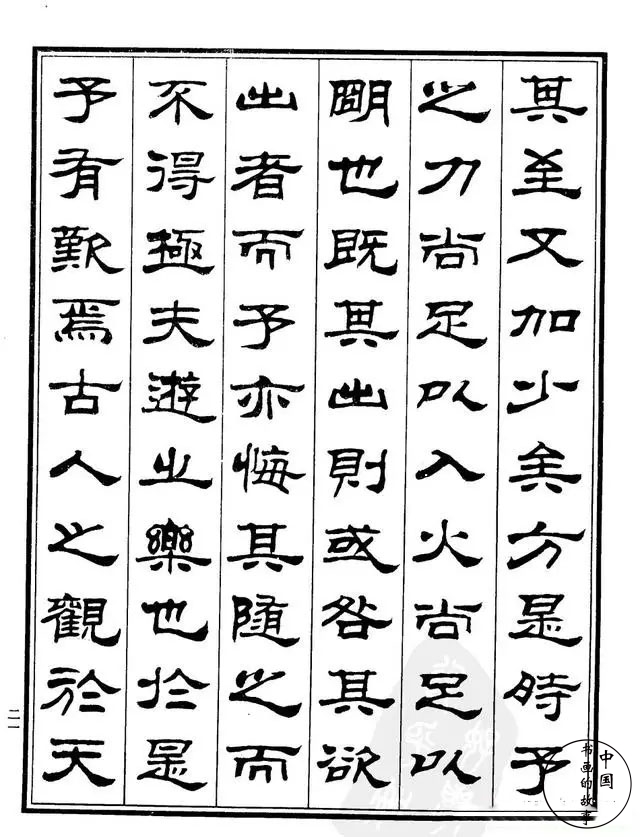 其至又加少矣方是時予
之力尚足以入火尚足以
明也既其出則或咎其欲
出者而予亦悔其隨之而
不得極夫遊之樂也於是
予有歎焉古人之觀於天
二一
中国
书画的故事